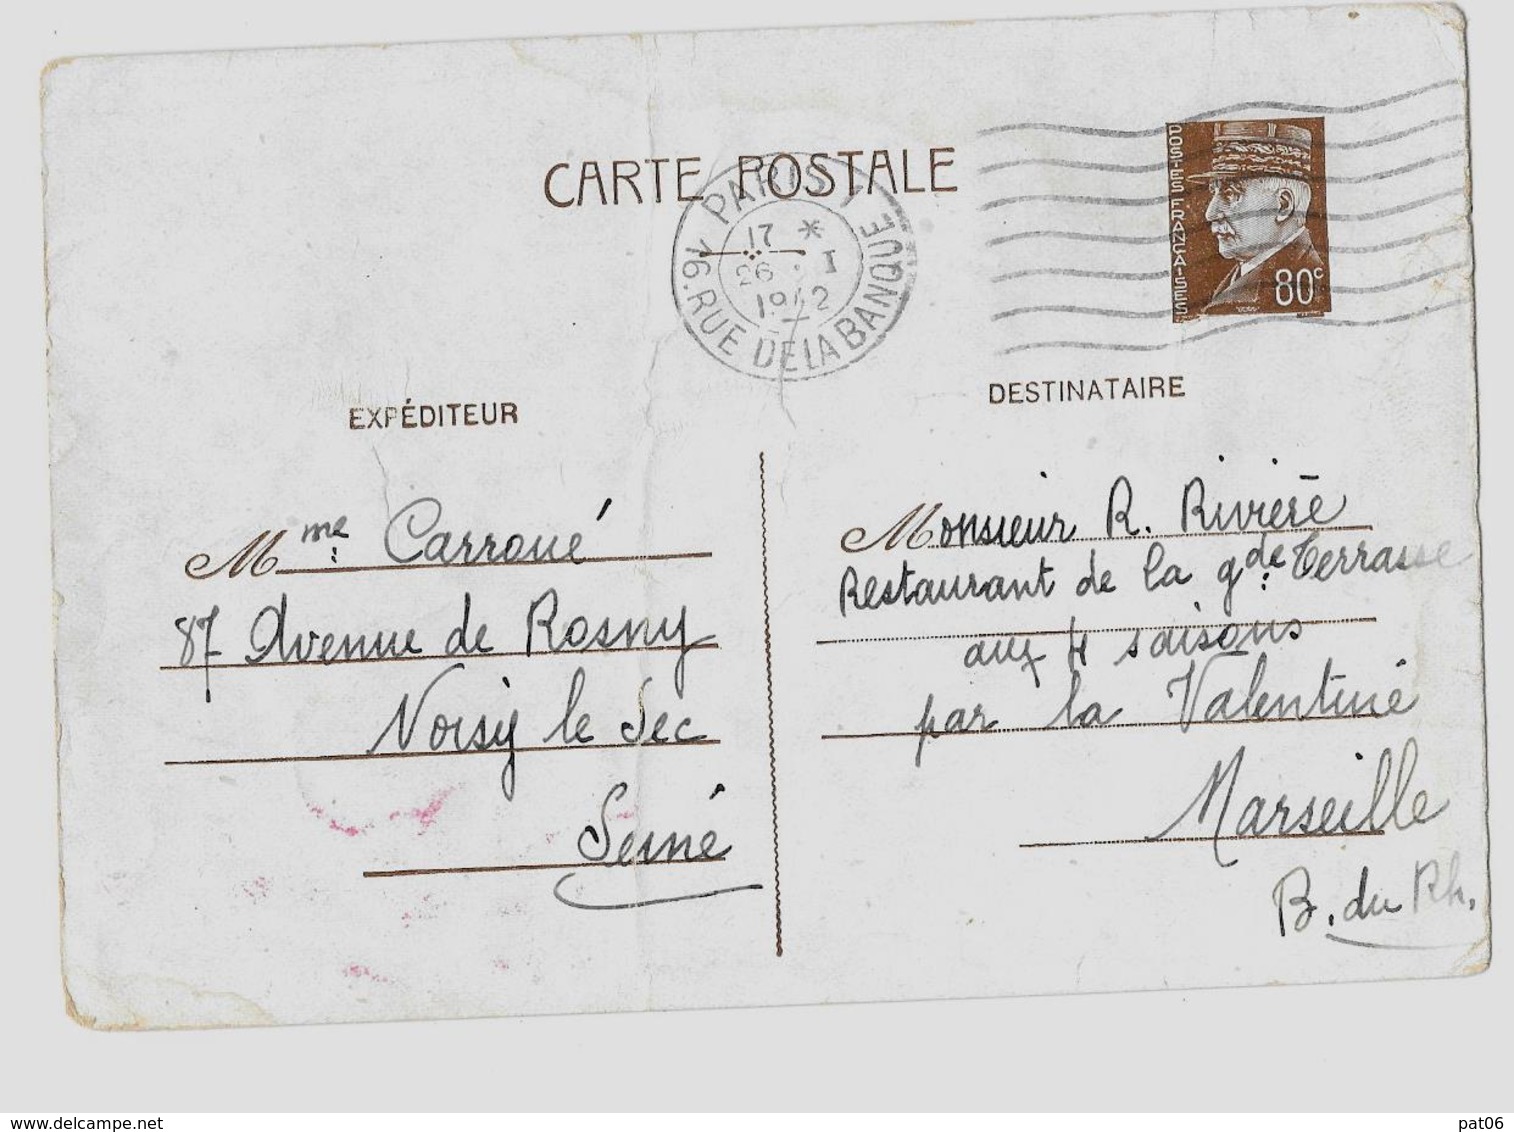 CARTE POSTALE
PARIS
17 *
26 . I
1942
16. RUE DE LA BANQUE
POSTES FRANÇAISES
80c
EXPÉDITEUR
Mme Carroué
87 Avenue de Rosny
Noisy le Sec
Seine
DESTINATAIRE
Monsieur R. Rivière
Restaurant de la gde Terrasse
aux 4 saisons
par la Valentine
Marseille
B. du Rh.
www.delcampe.net
pat06